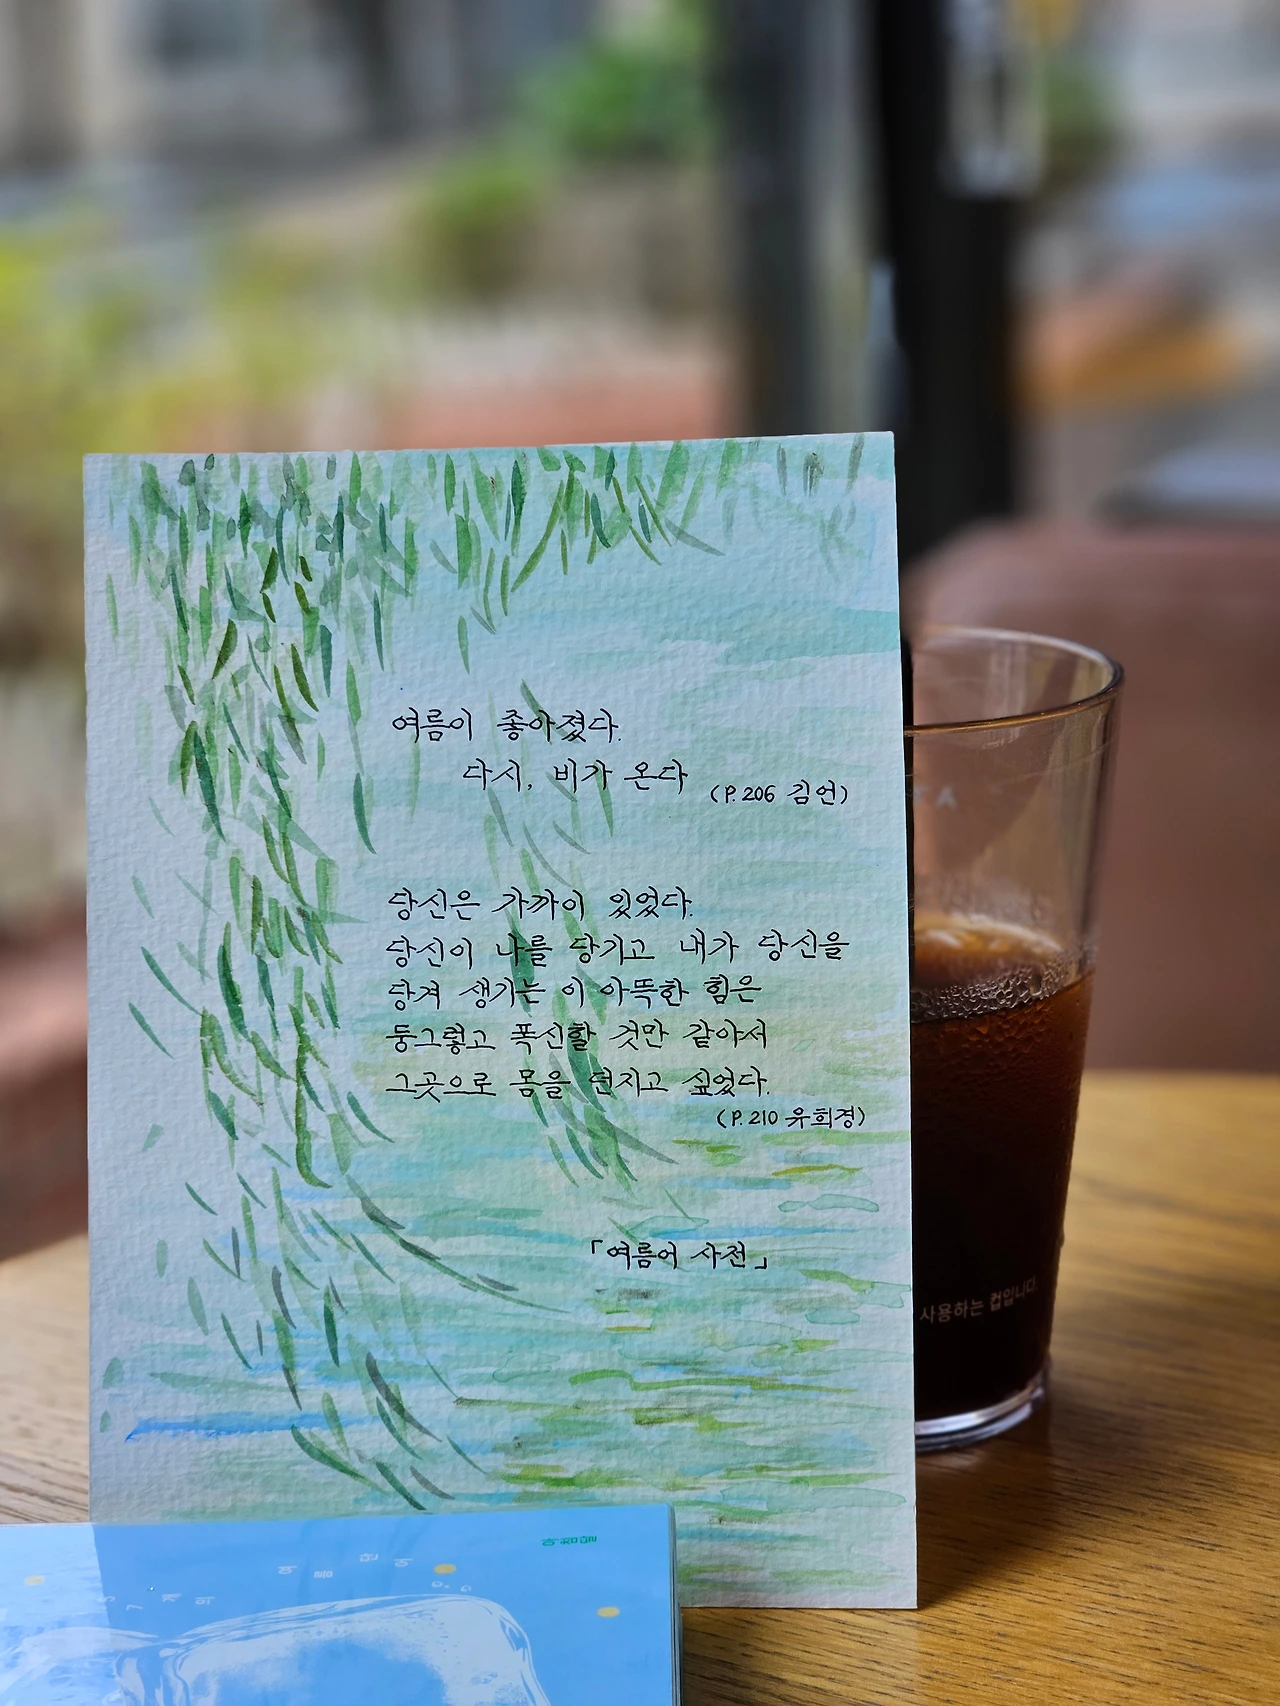 여름이 좋아졌다.
다시, 비가 온다
(P.206 김언)
당신은 가까이 있었다.
당신이 나를 당기고 내가 당신을
당겨 생기는 이 아뜩한 힘은
둥그렇고 폭신할 것만 같아서
그곳으로 몸을 던지고 싶었다.
(P.210 유희경)
「여름어 사전」
사용하는 컵입니다.